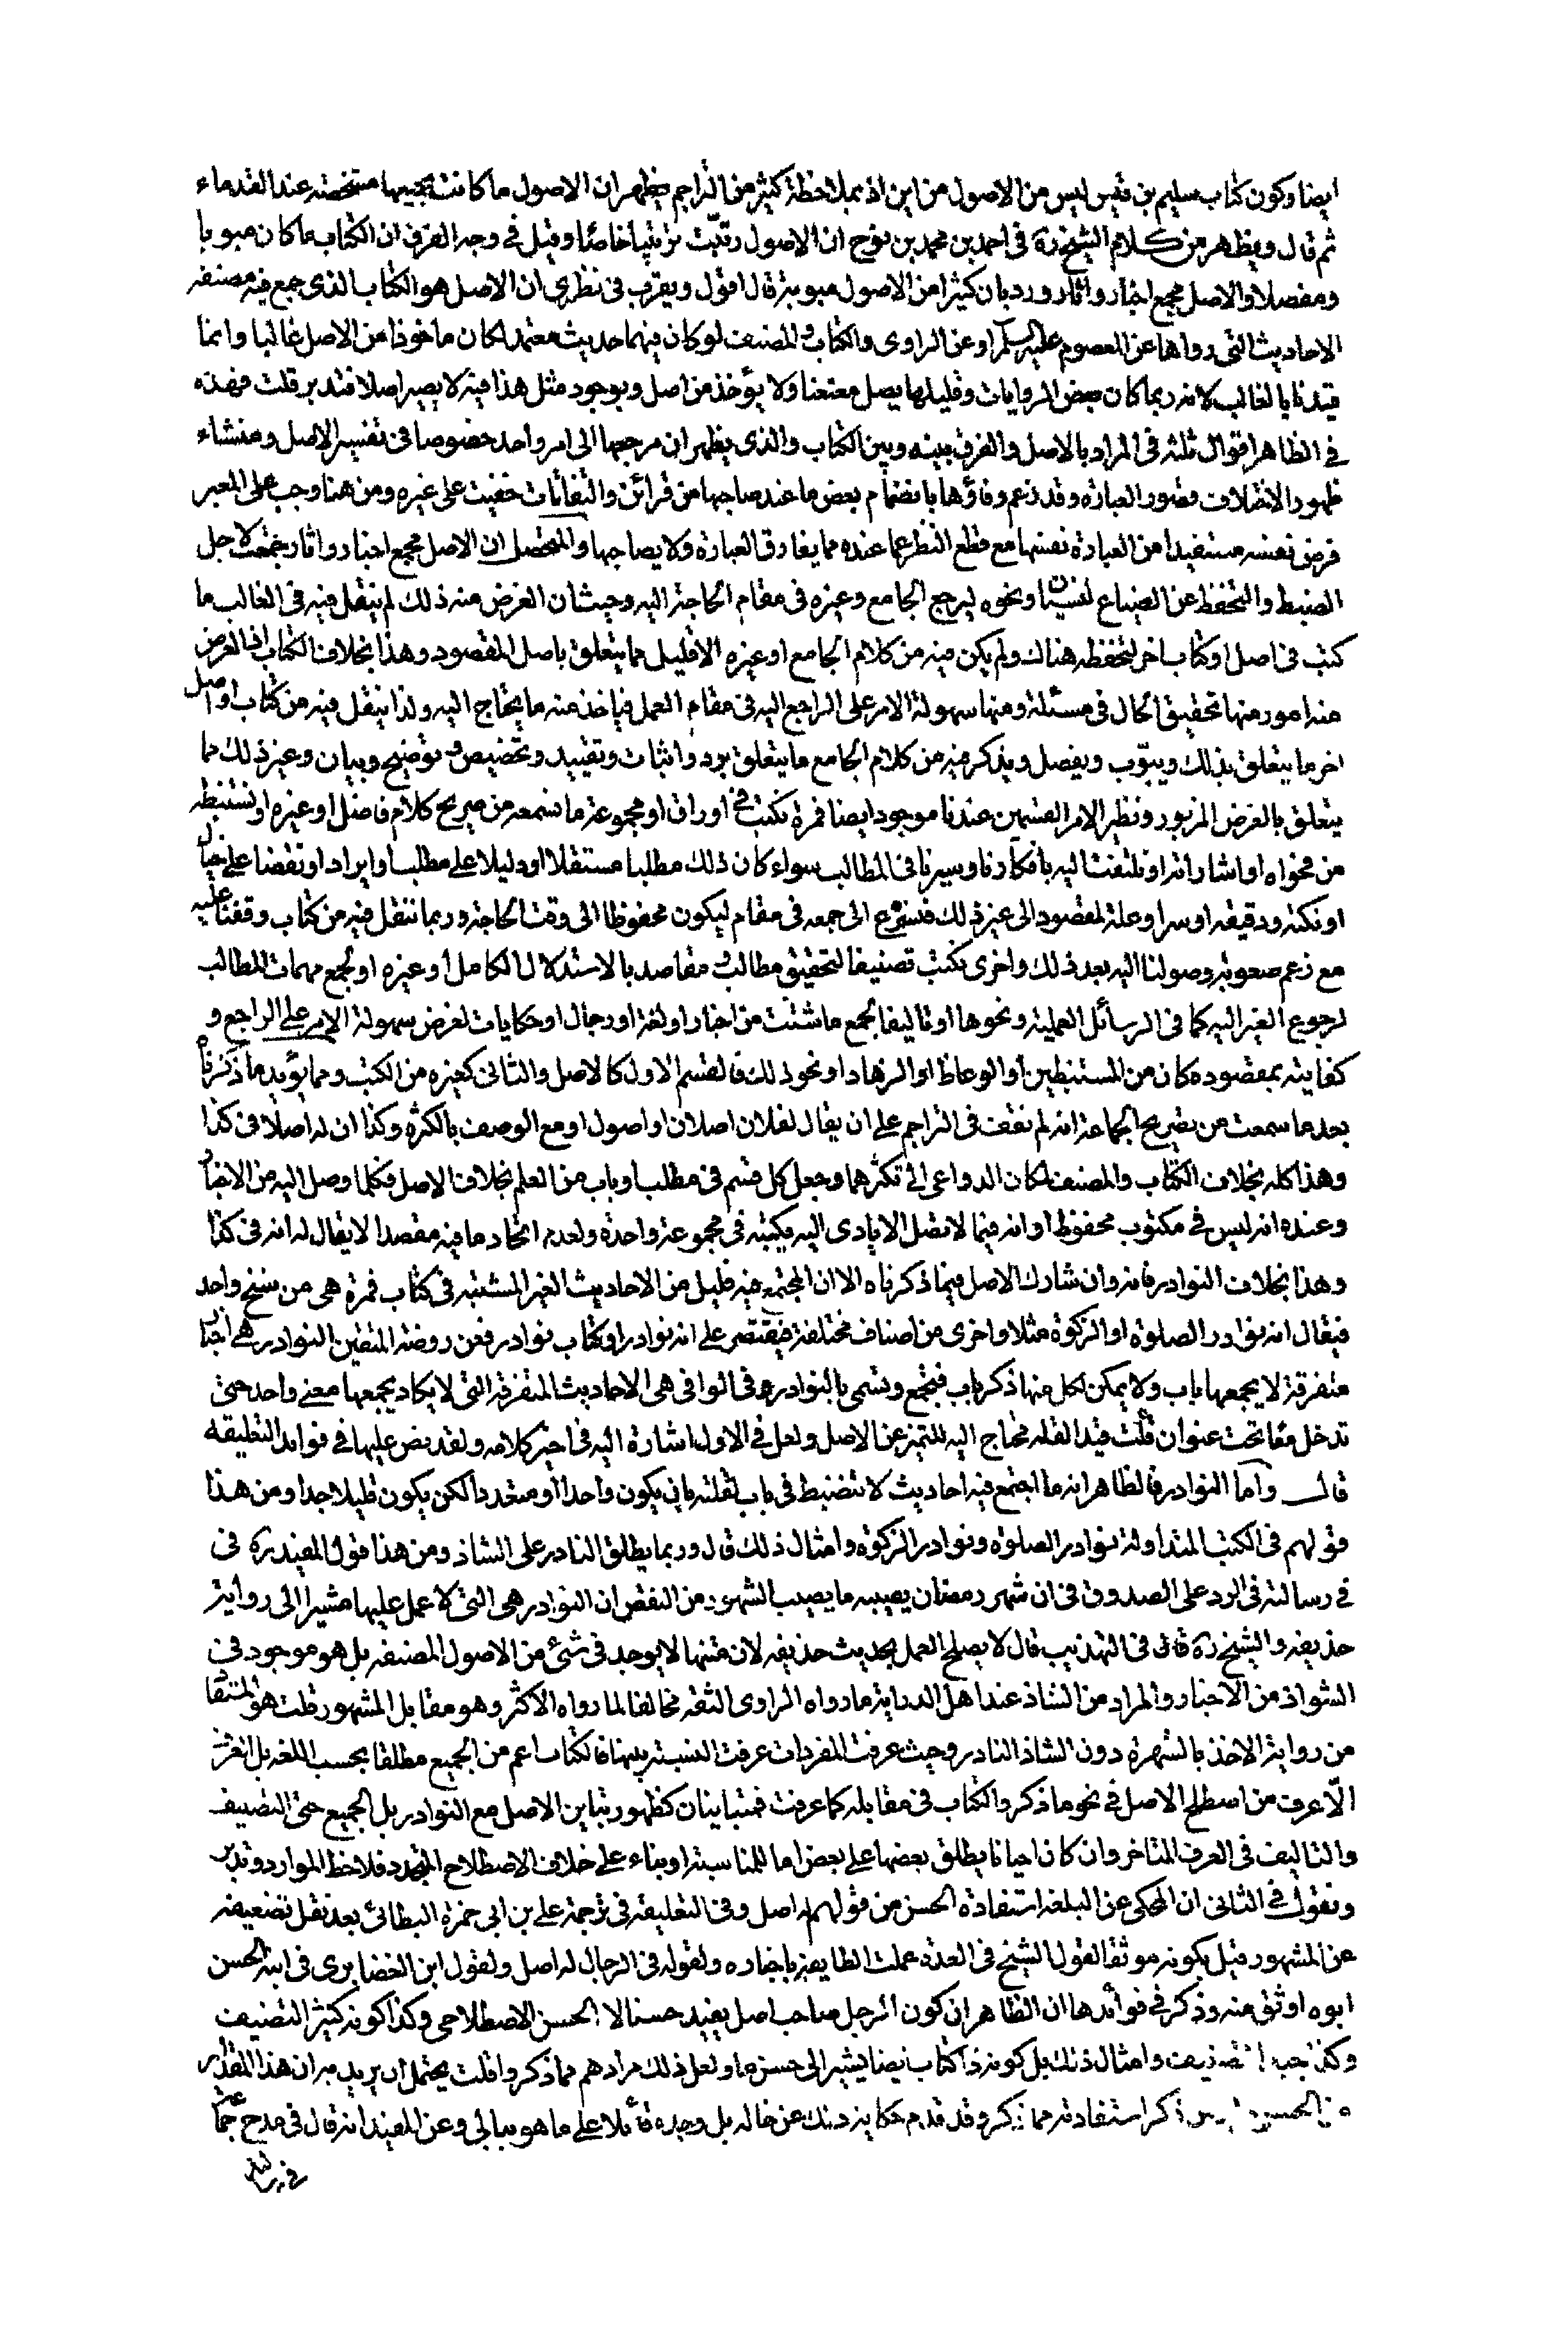 ايضا وكون كتاب سليم بن قيس ليس من الاصول من اين اذ بملاحظة كثير من التراجم يظهر ان الاصول ما كانت بجميعها مشخصة عند القدماء
ثم قال ويظهر من كلام الشيخ ره في احمد بن محمد بن نوح ان للاصول رتبت ترتيبا خاصا وقيل في وجه الفرق ان الكتاب ما كان مبوبا
ومفصلا والاصل مجمع اخبار واثار ورد بان كثيرا من الاصول مبوبة قال اقول ويقرب في نظري ان الاصل هو الكتاب الذي جمع فيه مصنفه
الاحاديث التي رواها عن المعصوم عليه السلم او عن الراوي والكتاب والمصنف لو كان فيهما حديث معتمد لكان ماخوذا من الاصل غالبا وانما
قيدنا بالغالب لانه ربما كان بعض الروايات وقليلها يصل معنعنا ولا يؤخذ من اصل وبوجود مثل هذا فيه لا يصير اصلا فتدبر قلت فهذه
في الظاهر اقوال ثلثة في المراد بالاصل والفرق بينه وبين الكتاب والذي يظهر ان مرجعها الى امر واحد خصوصا في تفسير الاصل ومنشاء
ظهور الاختلاف قصور العبارة وقد زعم وفاؤها بانضمام بعض ما عند صاحبها من قرائن والتفاتات خفيت على غيره ومن هنا وجب على المعبر
فرض نفسه مستفيدا من العبارة نفسها مع قطع النظر عما عنده مما يفارق العبارة ولا يصاحبها والمتحصل ان الاصل مجمع اخبار واثار جمعت لاجل
الضبط والتحفظ عن الضياع لنسيان ونحوه ليرجع الجامع وغيره في مقام الحاجة اليه وحيث ان الغرض منه ذلك لم ينقل فيه في الغالب ما
كتب في اصل او كتاب اخر لتحفظه هناك ولم يكن فيه من كلام الجامع او غيره الا قليل مما يتعلق باصل المقصود وهذا بخلاف الكتاب اذ الغرض
منه امور منها تحقيق الحال في مسئلة ومنها سهولة الامر على الراجع اليه في مقام العمل فياخذ منه ما يحتاج اليه ولذا ينقل فيه من كتاب او اصل
اخر ما يتعلق بذلك ويبوب ويفصل ويذكر فيه من كلام الجامع ما يتعلق برد واثبات وتقييد وتخصيص وتوضيح وبيان وغير ذلك مما
يتعلق بالغرض المزبور ونظير الامر القسمين عندنا موجود ايضا فمرة نكتب في اوراق او مجموعة ما نسمعه من صريح كلام فاضل او غيره او نستنبطه
من فحواه او اشاراته او نلتفت اليه بافكارنا وسيرنا في المطالب سواء كان ذلك مطلبا مستقلا او دليلا على مطلب او ايراد او نقضا على
او نكتة ودقيقة او سرا وعلة لمقصود الى غير ذلك فنسرع الى جمعه في مقام ليكون محفوظا الى وقت الحاجة وربما ننقل فيه من كتاب وقفنا عليه
مع زعم صعوبة وصولنا اليه بعد ذلك واخرى نكتب تصنيفا لتحقيق مطالب ومقاصد بالاستدلال الكامل او غيره او لجمع مهمات المطالب
لرجوع الغير اليه كما في الرسائل العملية ونحوها او تاليفا لجمع ما شتت من اخبار او لغة او رجال او حكايات لغرض سهولة الامر على الراجع و
كفايته بمقصوده كان من المستنبطين او الوعاظ او الزهاد او نحو ذلك فالقسم الاول كالاصل والثاني كغيره من الكتب ومما يؤيد ما ذكرنا
بعد ما سمعت من تصريح الجماعة انه لم نقف في التراجم على ان يقال لفلان اصلان او اصول او مع الوصف بالكثرة وكذا ان له اصلا في كذا
وهذا كله بخلاف الكتاب والمصنف لكان الدواعي الى تكثرهما وجعل كل قسم في مطلب او باب من العلم بخلاف الاصل فكلما وصل اليه من الاخبار
وعنده انه ليس في مكتوب محفوظ او انه فيما لا تصل الايادي اليه يكتبه في مجموعة واحدة ولعدم اتحاد ما فيه مقصدا لا يقال له انه في كذا
وهذا بخلاف النوادر فانه وان شارك الاصل فيما ذكرناه الا ان المجتمع فيه قليل من الاحاديث الغير المثبتة في كتاب فمرة هي من سنخ واحد
فيقال انه نوادر الصلوة او الزكوة مثلا واخرى من اصناف مختلفة فيقتصر على انه نوادر او كتاب نوادر فعن روضة المتقين النوادر هي اخبار
متفرقة لا يجمعها باب ولا يمكن لكل منها ذكر باب فتجمع وتسمى بالنوادر وفي الوافي هي الاحاديث المتفرقة التي لا يكاد يجمعها معنى واحد حتى
تدخل معا تحت عنوان قلت قيد القلة محتاج اليه للتميز عن الاصل ولعل في الاول اشارة اليه في اخير كلامه ولقد نص عليها في فوايد التعليقة
قال واما النوادر فالظاهر انه ما اجتمع فيه احاديث لا تنضبط في باب لقلته بان يكون واحدا او متعددا لكن يكون قليلا جدا ومن هذا
قولهم في الكتب المتداولة نوادر الصلوة ونوادر الزكوة وامثال ذلك قال وربما يطلق النادر على الشاذ ومن هذا قول المفيد ره في
في رسالته في الرد على الصدوق في ان شهر رمضان يصيبه ما يصيب الشهور من النقص ان النوادر هي التي لا عمل عليها مشيرا الى رواية
حذيفة والشيخ ره قال في التهذيب قال لا يصلح العمل بحديث حذيفة لان متنها لا يوجد في شئ من الاصول المصنفة بل هو موجود في
الشواذ من الاخبار والمراد من الشاذ عند اهل الدراية ما رواه الراوي الثقة مخالفا لما رواه الاكثر وهو مقابل المشهور قلت هو المستفا
من رواية الاخذ بالشهرة دون الشاذ النادر وحيث عرفت المفردات عرفت النسبة بينها فالكتاب اعم من الجميع مطلقا بحسب اللغة بل العرف
الا عرف من اصطلح الاصل في نحو ما ذكر والكتاب في مقابله كما عرفت فمتباينان كظهور تباين الاصل مع النوادر بل الجميع حتى التصنيف
والتاليف في العرف المتاخر وان كان احيانا يطلق بعضها على بعض اما للمناسبة او بناء على خلاف الاصطلاح المتجدد فلاحظ الموارد وتدبر
ونقول في الثاني ان المحكي عن البلغة استفادة الحسن من قولهم له اصل وفي التعليقة في ترجمة علي بن ابي حمزة البطائني بعد نقل تضعيفه
عن المشهور قيل بكونه موثقا لقول الشيخ في العدة عملت الطايفة باخباره ولقوله في الرجال له اصل ولقول ابن الغضايري في ابنه الحسن
ابوه اوثق منه وذكر في فوائدها ان الظاهر ان كون الرجل صاحب اصل يفيد حسنا لا الحسن الاصطلاحي وكذا كونه كثير التصنيف
وكذا جيد التصنيف وامثال ذلك بل كونه ذا كتاب ايضا يشير الى حسن ما ولعل ذلك مرادهم مما ذكروا قلت يحتمل ان يريد به ان هذا المقدار
من الحسن ذكر استفادته مما ذكر وقد قدم حكاية ذلك عن خاله بل وجده قائلا على ما هو ببالي وعن المفيد انه قال في مدح جماعة
في